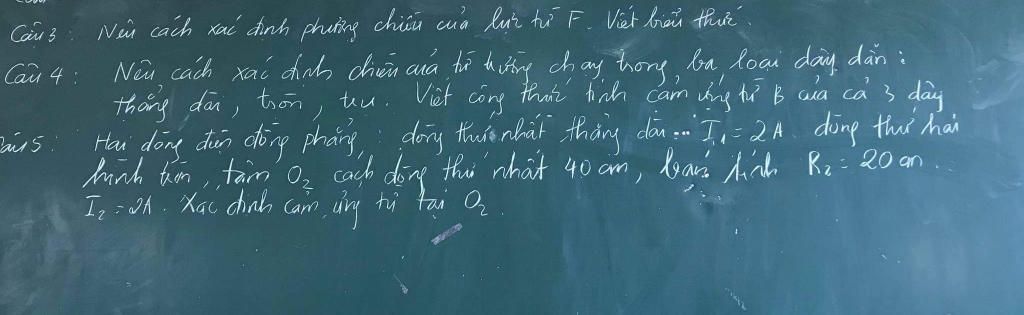 Câu 3 : Nêu cách xác định phương chiều của lực từ F. Viết biểu thức.
Câu 4 : Nêu cách xác định chiều của từ trường chạy trong ba loại dây dẫn :
thẳng dài, tròn, trụ. Viết công thức tính cảm ứng từ B của cả 3 dây
Câu 5 : Hai dòng điện đồng phẳng : dòng thứ nhất thẳng dài ... I₁ = 2A. dòng thứ hai
hình tròn, tâm O₂ cách dòng thứ nhất 40 cm, bán kính R₂ = 20 cm.
I₂ = 2A. Xác định cảm ứng từ tại O₂.